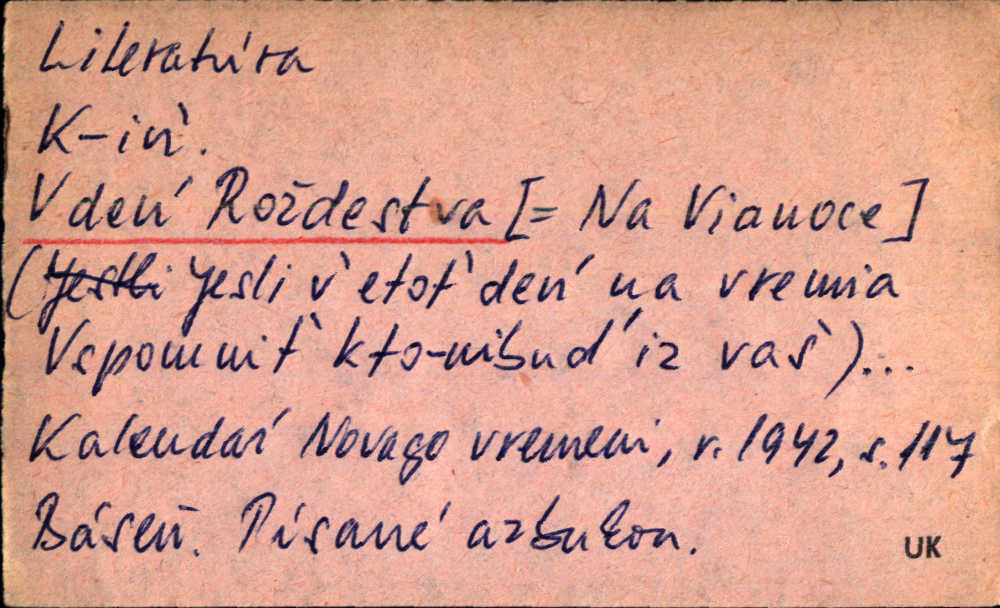 Literatúra
K-iň.
V deń Roždestva [= Na Vianoce]
(Jestli Jesli v̀ etot̀ deń na vremia
Vspomnit̀ kto-nibuď iz vas̀)...
Kalendaŕ Novago vremeni, r. 1942, s. 117
Báseň. Písané azbukou.
UK